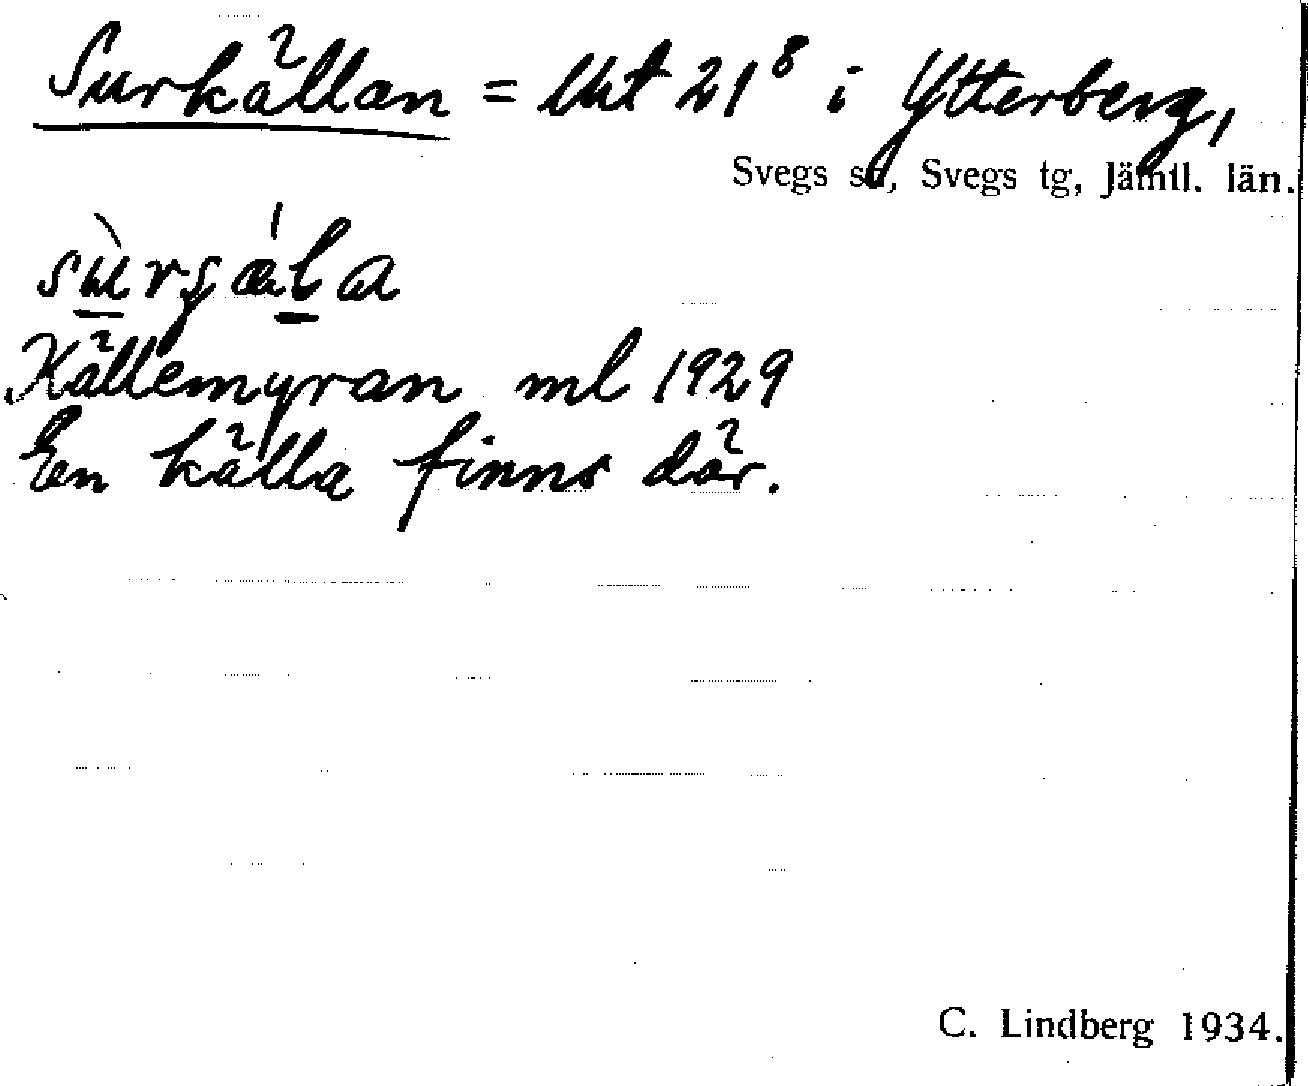 Surkällan = Urt 21⁸ i Ytterberg,
Svegs sn, Svegs tg, Jämtl. län.
sùrʂǽla
Källemyran ml 1929
En källa finns där.
C. Lindberg 1934.